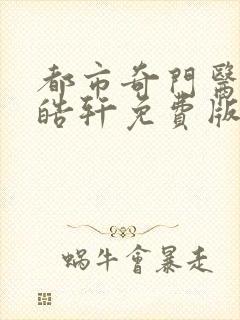 都市奇門醫
皓軒免費版
蝸牛會暴走